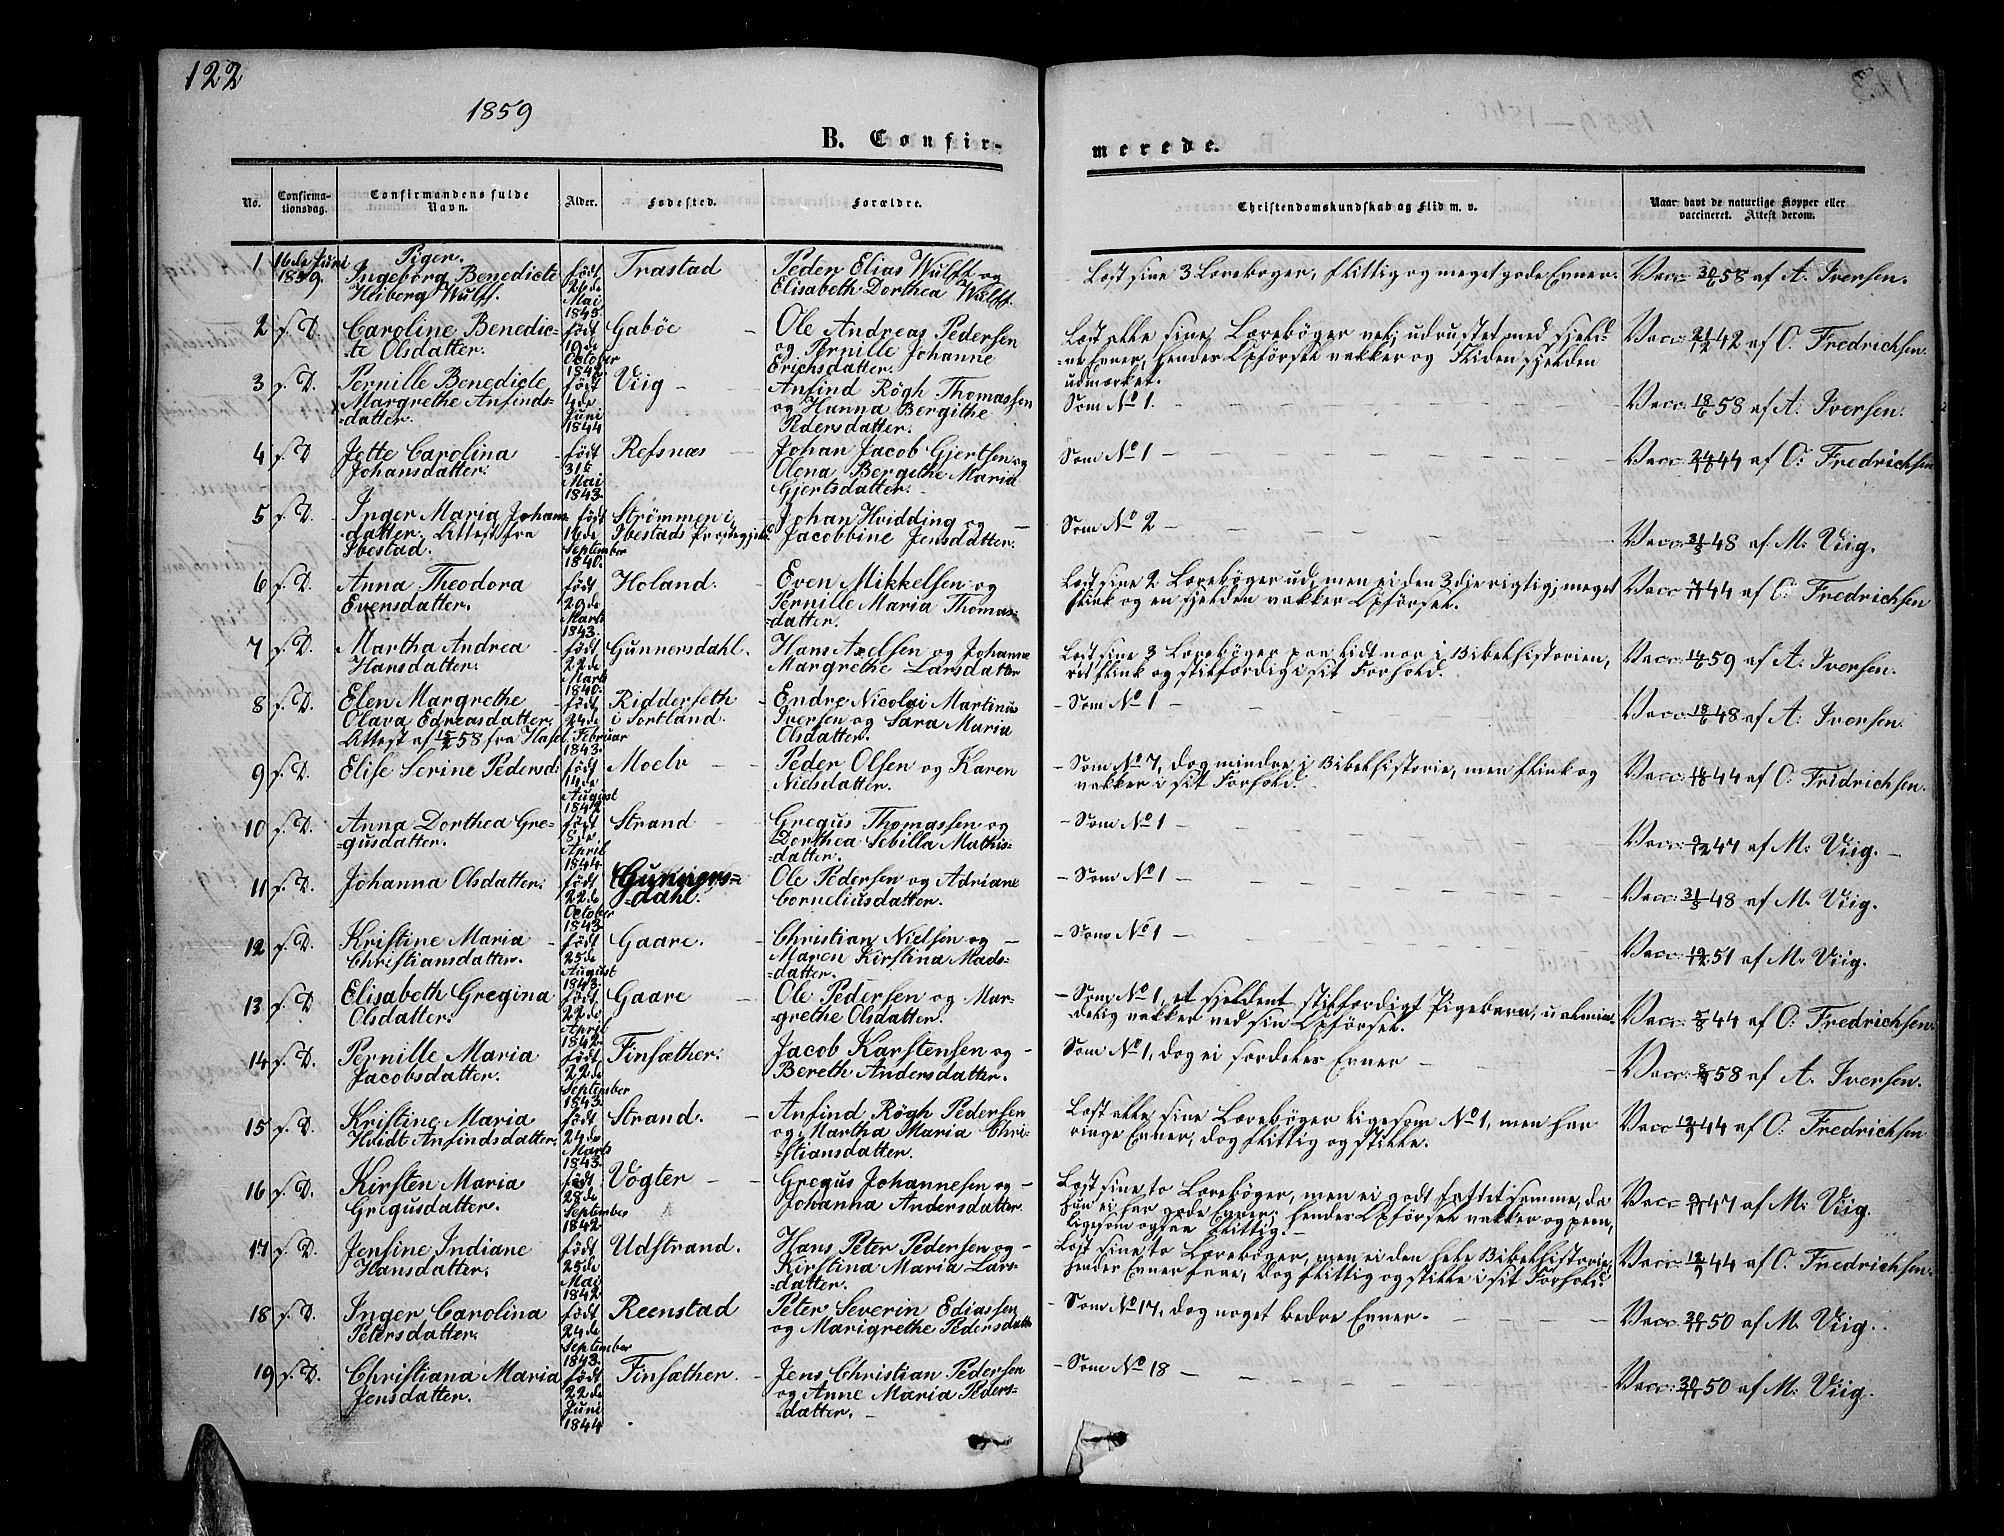 122
1859
B. Confir-
merede.
No.
Confirma-
tionsdag.
Confirmandens fulde
Navn.
Alder.
Fødested.
Forældre.
Christendomskundskab og Flid m. v.
Naar havt de naturlige Kopper eller
vaccineret. Attest derom.
Piger.
1 16de Juni 1859. Ingeborg Benedicte Heiberg Wulff. født 26de Mai 1845 Trastad Peder Elias Wulff og Elisabeth Dorthea Wulff. Læst sine 3 Lærebøger, flittig og meget gode Evner. Vacc 58 af A. Iversen.
2 s. D. Caroline Benedic-te Olsdatter. født 19de October 1842 Gabøe Ole Andreas Pedersen og Pernille Johanne Erichsdatter. Læst alle sine Lærebøger vel; udrustet med sjeld-ne Evner, hendes Opførsel vakker og Fliden sjelden udmærket. Vacc 42 af O. Fredrichsen.
3 s. D. Pernille Benedicte Margrethe Anfinds-datter. født 4de Juni 1844 Viig - Anfind Rögh Thomassen og Hanna Bergithe Pedersdatter. Som No 1. Vacc 18/6 58 af A. Iversen.
4 s. D Jette Carolina Johansdatter. født 31te Mai 1843. Refsnæs - Johan Jacob Gjertsen og Olena Bergethe Maria Gjertsdatter. Som No 1 - Vacc 44 af O. Fredrichsen
5 s. D. Inger Maria Johans-datter. Attest fra Ibestad. født 16de September 1840. Strømmen i Ibestads Præstegjeld Johan Hvidding og Jacobbine Jensdatter. Som No 2 - Vacc 31/3 48 af M. Viig.
6 s. D. Anna Theodora Evensdatter. født 29de Marts 1843. Holand. Even Mikkelsen og Pernille Maria Thomas-datter. Læst sine 2 Lærebøger ud, men ei den 3die rigtig; meget flink og en sjelden vakker Opførsel. Vacc 44 af O. Fredrichsen
7 s. D. Martha Andrea Hansdatter. født 22de Marts 1840. Gunnersdahl. Hans Axelsen og Johanna Margrethe Larsdatter Læst sine 3 Lærebøger paa lidt nær i Bibelhistorien, ret flink og stilfærdig i sit Forhold. Vacc 59 af A. Iversen.
8 s. D. Elen Margrethe Olava Edreasdatter. Attest af 15/2 58 fra Hasel. født 24de Februar 1843. Ridderseth i Sortland. Endre Nicolai Martinus Iversen og Sara Maria Olsdatter. Som No 1 - Vacc 18/6 48 af A. Iversen.
9 s. D. Elise Serine Pedersd: født 14de August 1842 Moelv - Peder Olsen og Karen Nielsdatter. Som No 7, dog mindre i Bibelhistorie, men flink og vakker i sit Forhold. Vacc 44 af O. Fridrichsen.
10 s. D. Anna Dorthea Gre-gusdatter. født 8de April 1844 Strand - Gregus Thomassen og Dorthea Sebilla Mathis-datter. Som No 1 - Vacc 47 af M. Viig. -
11 s. D. Johanna Olsdatter. født 22de October 1843. Gunners-dahl. Ole Pedersen og Adriane Corneliusdatter. Som No 1 - Vacc 31/3 48 af M. Viig.
12 s. D. Kristine Maria Christiansdatter. født 25de August 1843. Gaare. Christian Nielsen og Maren Kirstina Mads-datter. Som No 1 - Vacc 51 af M. Viig.
13 s. D. Elisabeth Gregina Olsdatter. født 22de April 1842 Gaare - Ole Pedersen og Mar-grethe Olsdatter. Som No 1, et sjeldent stilfærdigt Pigebarn, ualmin-delig vakker ved sin Opførsel. Vacc 5/8 44 af O. Fredrichsen.
14 s. D. Pernille Maria Jacobsdatter. født 22de September 1843. Finsæther. Jacob Karstensen og Bereth Andersdatter. Som No 1, dog ei særdeles Evner - Vacc 58 af A. Iversen.
15 s. D. Kristine Maria Hvidt Anfindsdatter. født 24de Marts 1843. Strand. Anfind Rögh Pedersen og Martha Maria Chri-stiansdatter. Læst alle sine Lærebøger ligesom No 1, men har ringe Evner, dog flittig og stille. Vacc 44 af O. Fredrichsen
16 s. D. Kirsten Maria Gregusdatter. født 28de September 1842. Vogter - Gregus Johannesen og Johanna Andersdatter Læst sine to Lærebøger, men ei godt fattet samme, da hun ei har gode Evner; hendes Opførsel vakker og pen, ligesom ogsaa flittig. - Vacc 47 af M. Viig.
17 s. D. Jensine Indiane Hansdatter. født 25de Mai 1842 Udstrand. Hans Peter Pedersen og Kirstina Maria Lars-datter. Læst sine to Lærebøger, men ei den hele Bibelhistorie, hendes Evner svae, dog flittig og stille i sit Forhold. Vacc 44 af O. Fredrichsen.
18 s. D. Inger Carolina Petersdatter. født 24de September 1843. Reenstad Peter Severin Ediassen og Marigrethe Pedersdatter Som No 17, dog noget bedre Evner. - Vacc 30/11 50 af M. Viig.
19 s. D. Christiana Maria Jensdatter. født 22de Juni 1844 Finsæther. - Jens Christian Pedersen og Anne Maria Peders-datter. - Som No 18 - Vacc 30/11 50 af M. Viig.